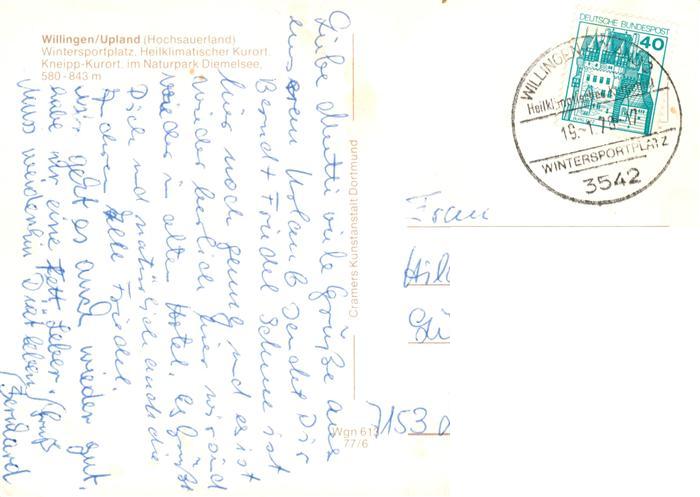 Willingen/Upland (Hochsauerland)
Wintersportplatz, Heilklimatischer Kurort,
Kneipp-Kurort, im Naturpark Diemelsee,
580-843 m
Liebe Mutti viele Grüße aus
unserem Urlaub sendet Dir
Bernd + Friedel Schnee ist
hier noch genug und es ist
wieder herlich hier wir sind
wieder im alten Hotel. es grüßt
Dich und natürlich auch die
Friedel.
Mir geht es auch wieder gut.
habe nur eine Fett Leber.
muss weiterhin Diät leben / Gruß
Bernhard
Cramers Kunstanstalt Dortmund
Wgn 613
77/6
DEUTSCHE BUNDESPOST
40
WILLINGEN
19.-1.79.-17
WINTERSPORTPLATZ
3542
Frau
7153